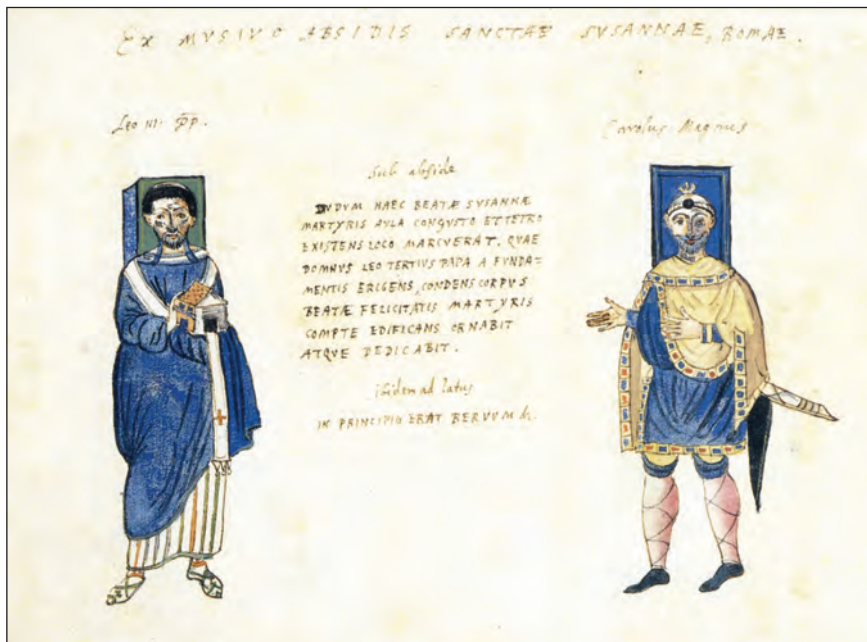 EX MVSIVO ABSIDIS SANCTAE SVSANNAE, ROMAE.
Leo III. PP.
Carolus Magnus
Sub abside
DVDVM HAEC BEATÆ SVSANNÆ
MARTYRIS AVLA CONGVSTO ET TETRO
EXISTENS LOCO MARCVERAT. QVAE
DOMNVS LEO TERTIVS PAPA A FVNDA-
MENTIS ERIGENS, CONDENS CORPVS
BEATÆ FELICITATIS MARTYRIS
COMPTE EDIFICANS ORNABIT
ATQVE DEDICABIT.
ibidem ad latus
IN PRINCIPIO ERAT BERVVM &c.